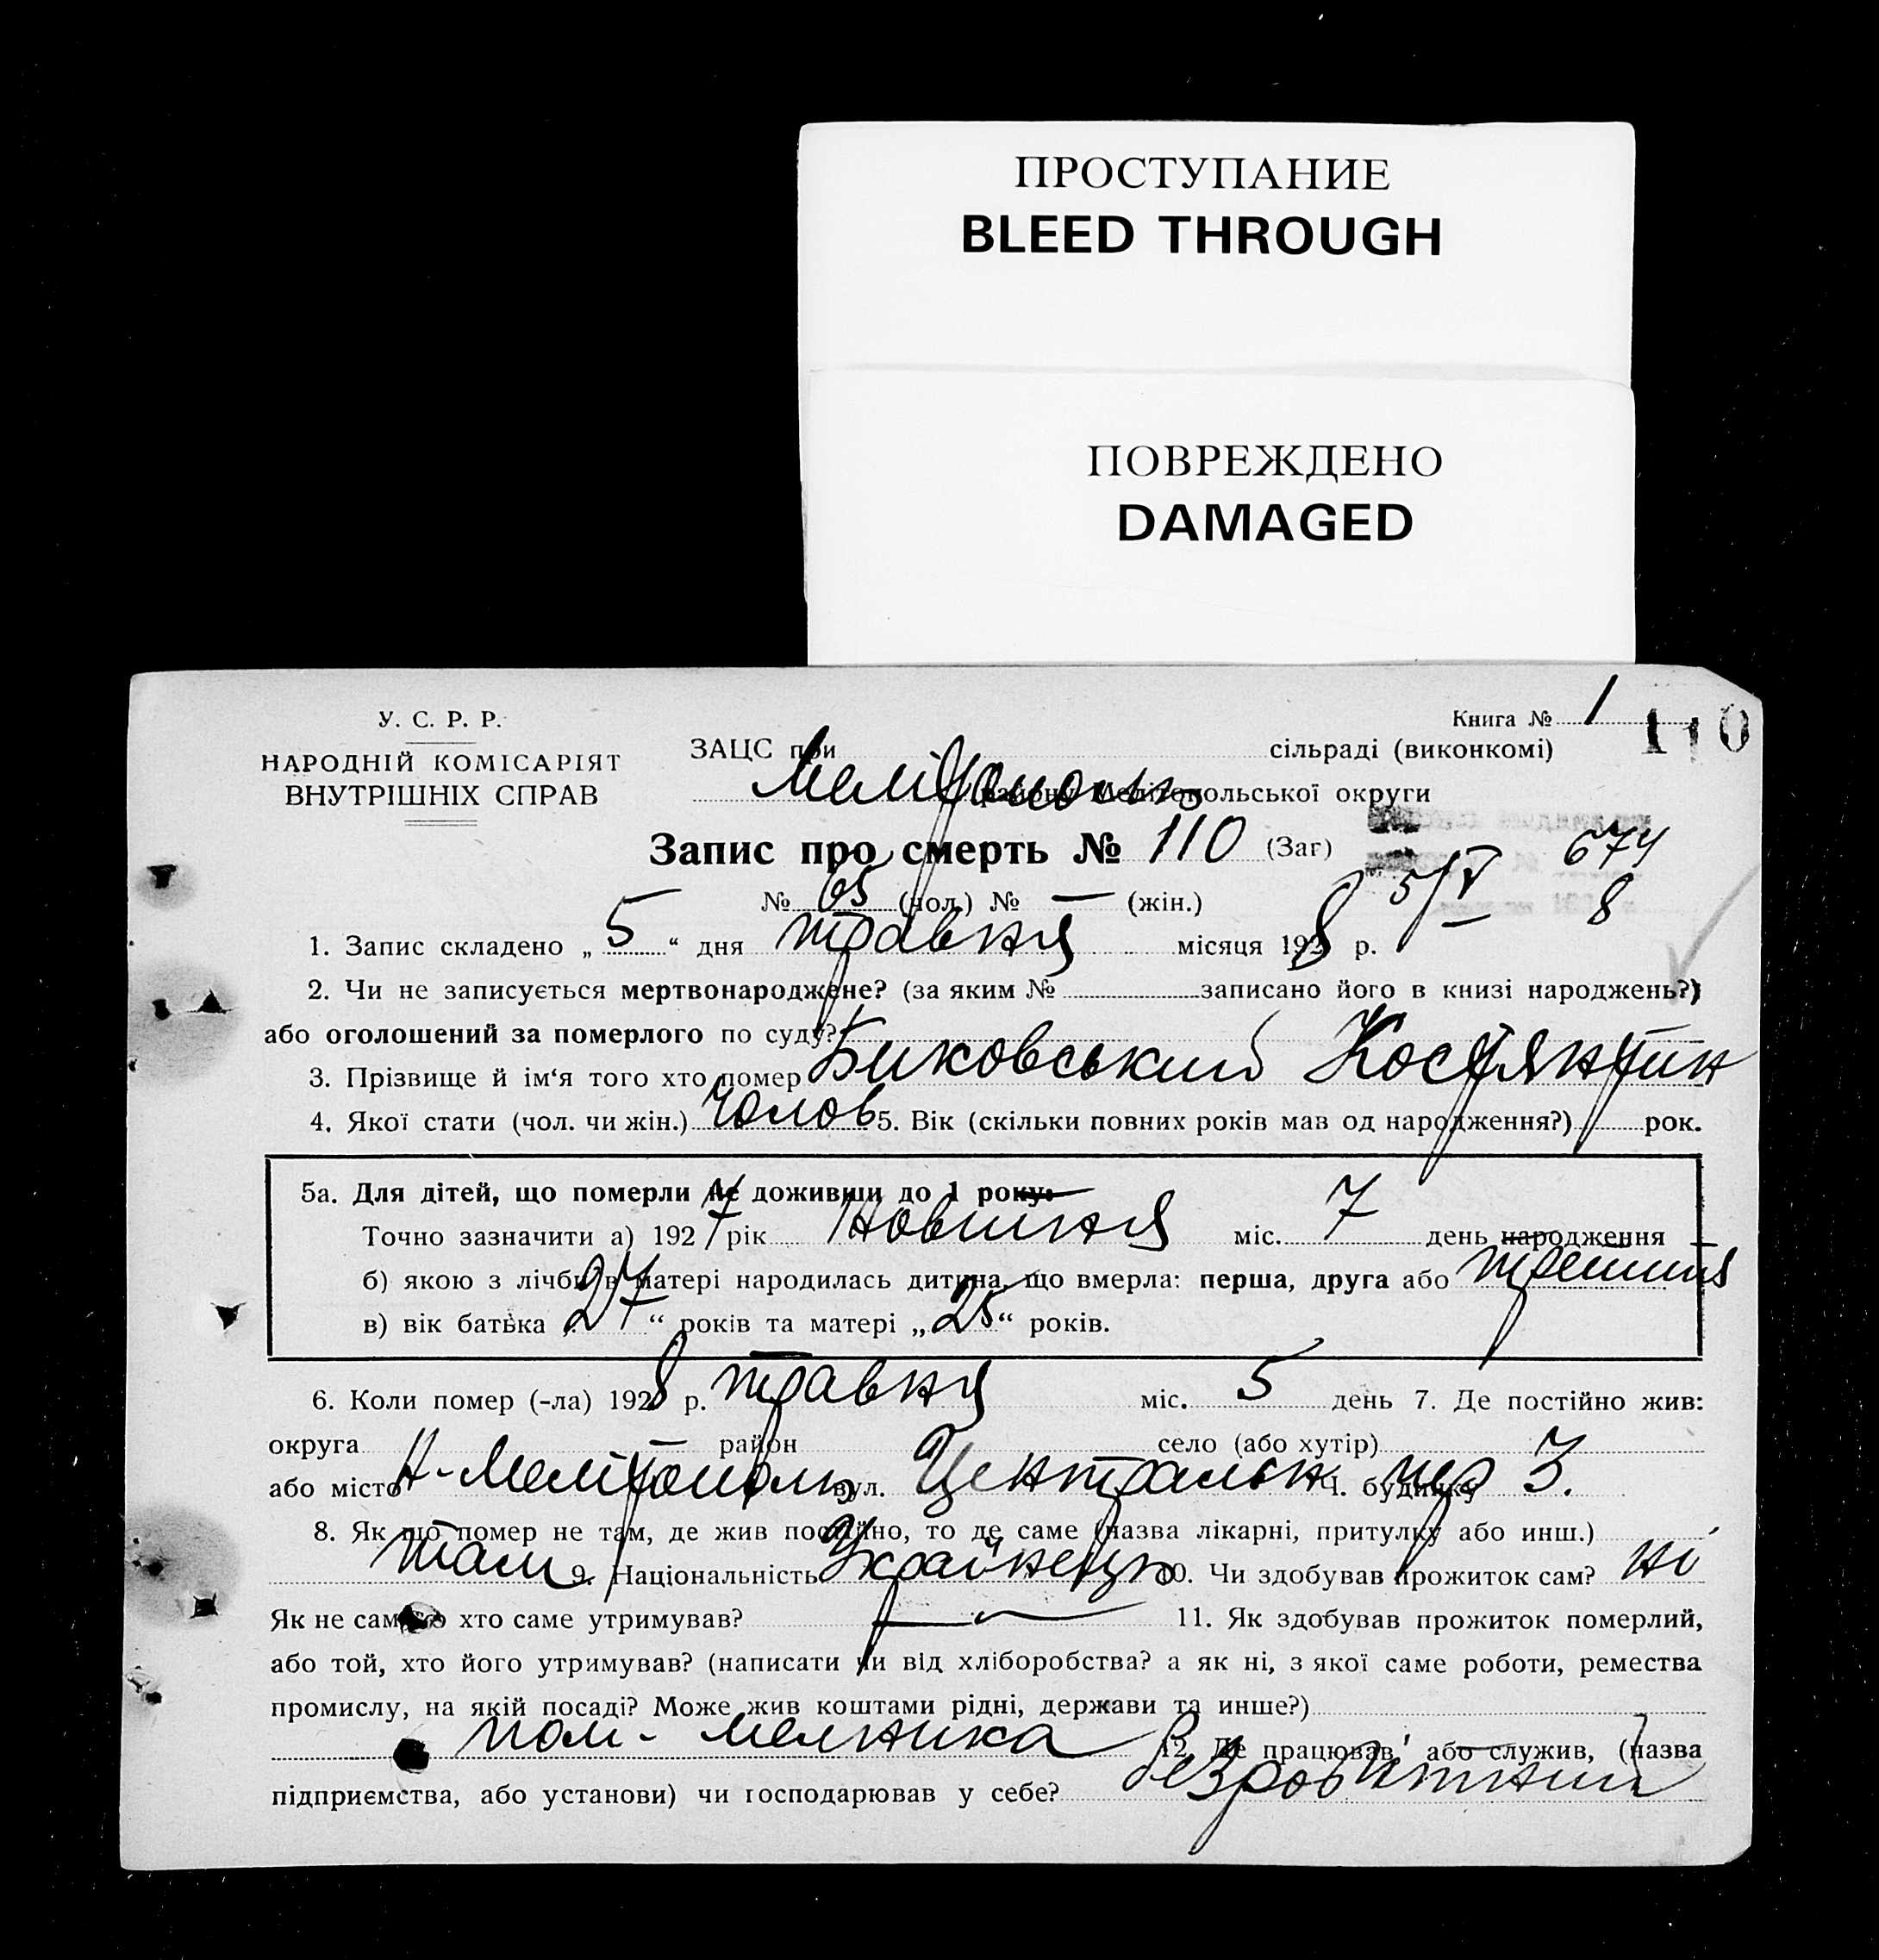 ПРОСТУПАНИЕ
BLEED THROUGH
ПОВРЕЖДЕНО
DAMAGED
У. С. Р. Р.
НАРОДНІЙ КОМІСАРІЯТ
ВНУТРІШНІХ СПРАВ
Книга № 1
110
ЗАЦС при сільраді (виконкомі)
Мелітополь району Мелітопольської округи
Запис про смерть № 110 (Заг)
674
№ 65 (чол.) № — (жін.)
5/V 8
1. Запис складено „ 5 “ дня травня місяця 1928 р.
2. Чи не записується мертвонароджене? (за яким № записано його в книзі народжень?)
або оголошений за померлого по суду?
3. Прізвище й ім‘я того хто помер Биковський Костянтин
4. Якої стати (чол. чи жін.) Чолов 5. Вік (скільки повних років мав од народження?) рок.
5а. Для дітей, що померли не доживши до 1 року:
Точно зазначити а) 1927 рік міс. 7 день народження
б) якою з лічби в матері народилась дитина, що вмерла: перша, друга або
в) вік батька „ 27 “ років та матері „ 25 “ років.
6. Коли помер (-ла) 1928 р. травня міс. 5 день 7. Де постійно жив:
округа район село (або хутір)
або місто Н-Мелітополь вул. Центральн Ч. будинку 3.
8. Як що помер не там, де жив постійно, то де саме (назва лікарні, притулку або инш.)
там 9. Національність Українець 10. Чи здобував прожиток сам? ні
Як не сам, то хто саме утримував? — 11. Як здобував прожиток померлий,
або той, хто його утримував? (написати чи від хліборобства? а як ні, з якої саме роботи, ремества
промислу, на якій посаді? Може жив коштами рідні, держави та инше?)
пом- мелника 12. Де працював або служив, (назва
підприємства, або установи) чи господарював у себе? безробітний